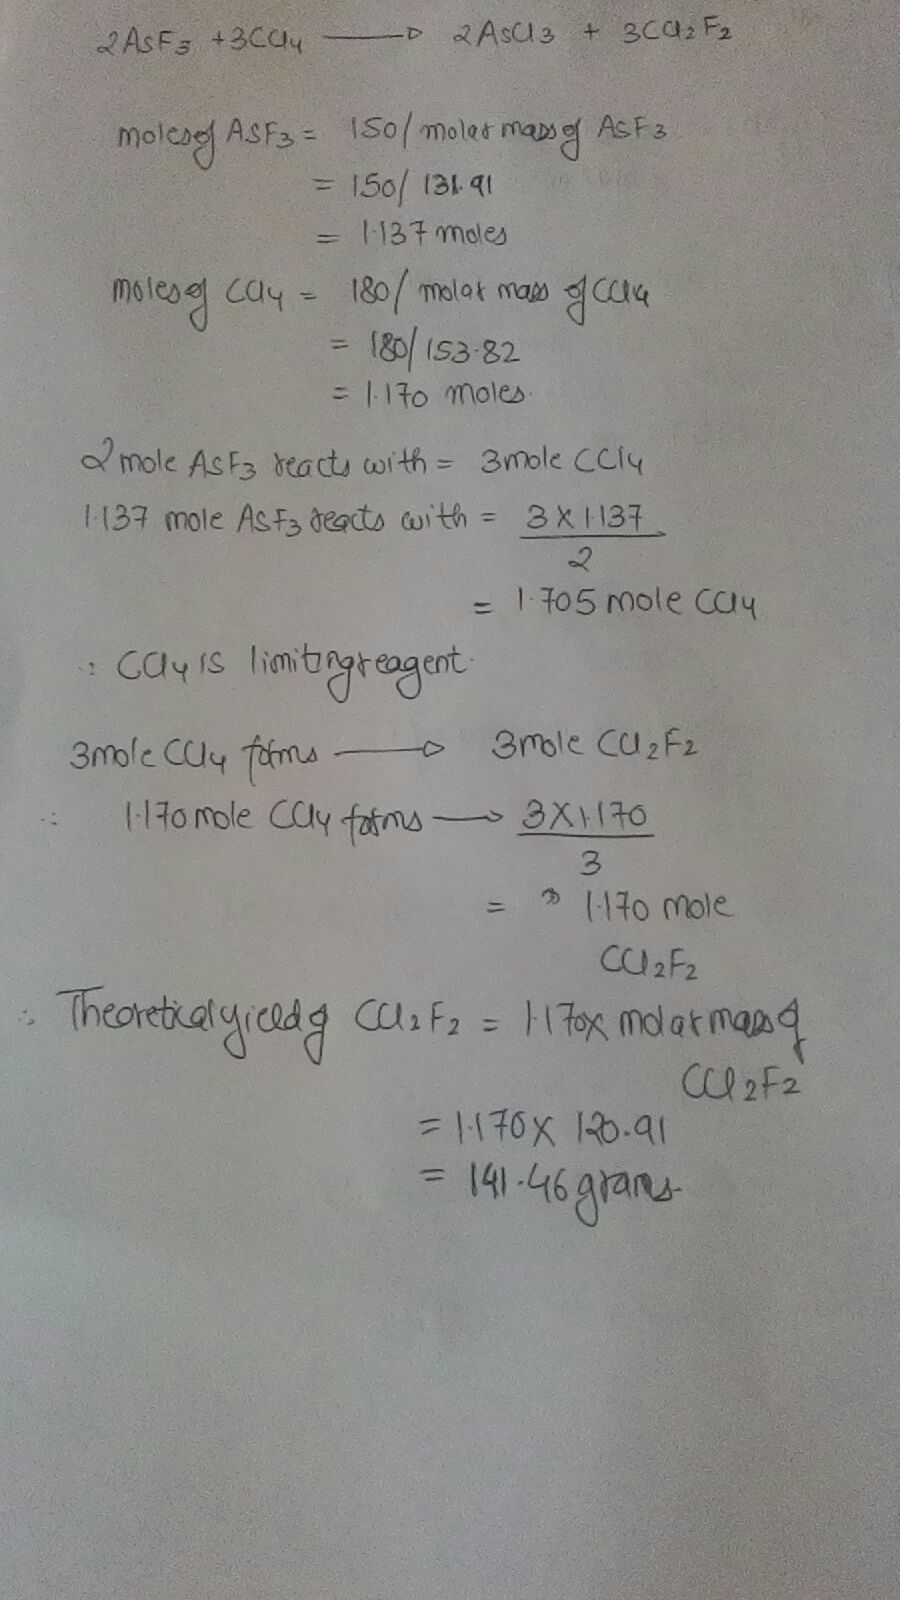 2AsF3 + 3CCl4 → 2AsCl3 + 3CCl2F2
moles of AsF3 = 150/ molar mass of AsF3
= 150/ 131.91
= 1.137 moles
moles of CCl4 = 180/ molar mass of CCl4
= 180/153.82
= 1.170 moles.
2 mole AsF3 reacts with = 3mole CCl4
1.137 mole AsF3 reacts with = 3 X 1.137
2
= 1.705 mole CCl4
∴ CCl4 is limiting reagent.
3mole CCl4 forms → 3mole CCl2F2
∴ 1.170 mole CCl4 forms → 3 X 1.170
3
= 1.170 mole
CCl2F2
∴ Theoretical yield of CCl2F2 = 1.170x molar mass of
CCl2F2
= 1.170 X 120.91
= 141.46 grams.